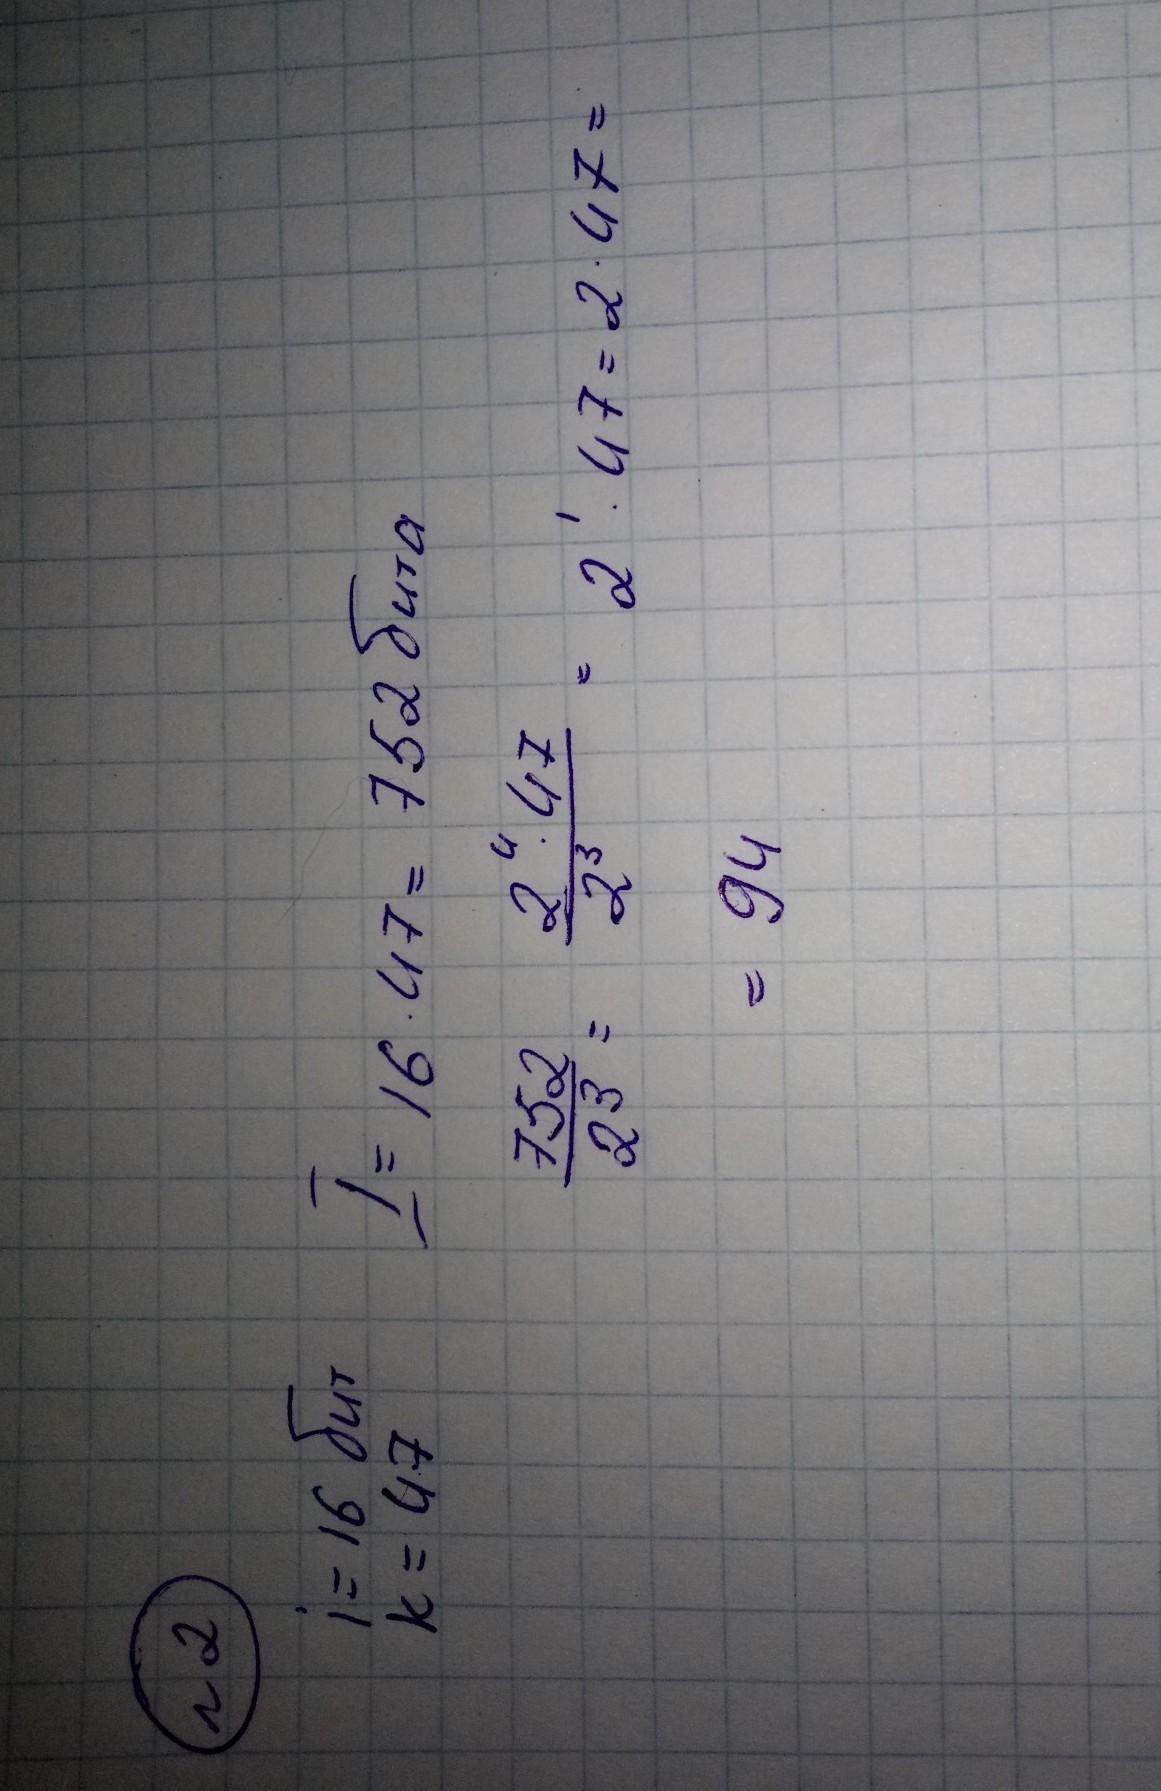 №2
i = 16 бит
k = 47
I = 16 · 47 = 752 бита
752/2³ = 2⁴ · 47/2³ = 2¹ · 47 = 2 · 47 =
= 94